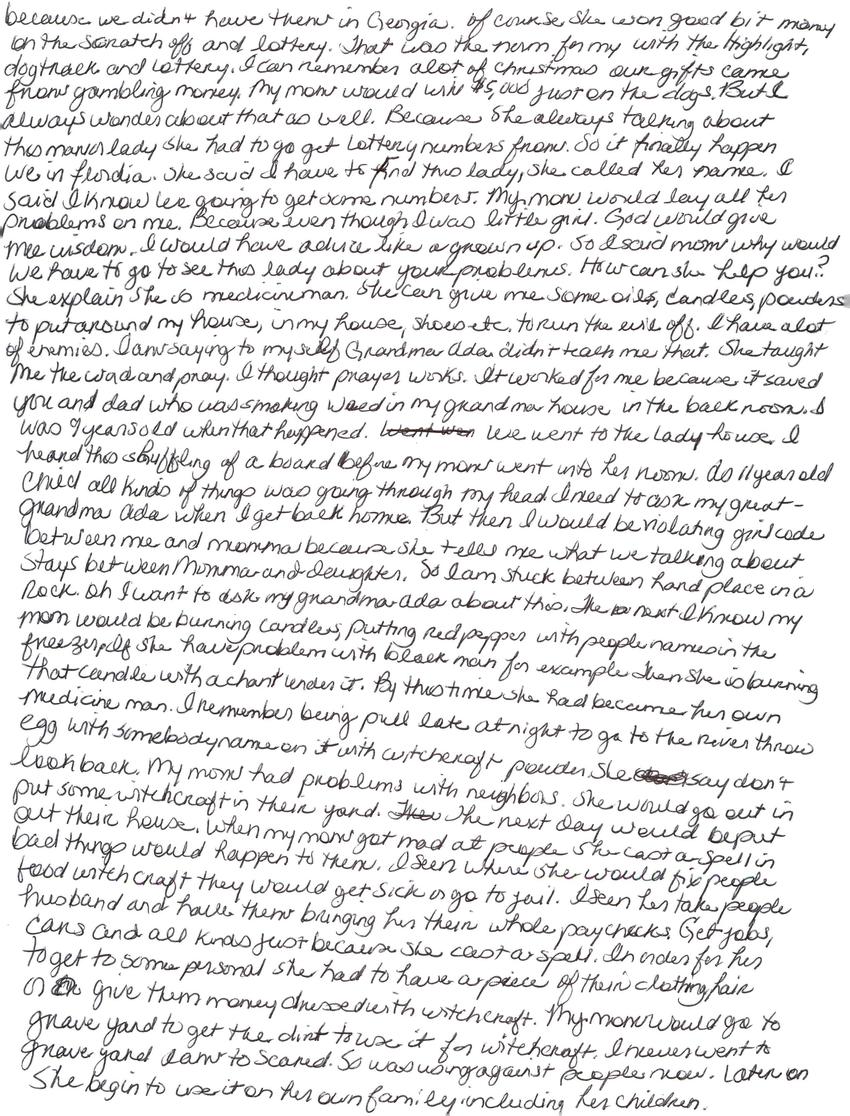 because we didn't have them in Georgia. Of course she won good bit money
on the scratch off and lottery. That was the norm for my with the Highlight,
dogtrack and lottery. I can remember alot of christmas our gifts came
from gambling money. My mom would win $5,000 just on the dogs. But I
always wonder about that as well. Because she always talking about
this man or lady she had to go get lottery numbers from. So it finally happen
we in flordia. She said I have to find this lady, she called her name. I
said I know we going to get some numbers. My mom would lay all her
problems on me. Because even though I was little girl. God would give
me wisdom. I would have advice like a grown up. So I said mom why would
we have to go to see this lady about your problems. How can she help you?
She explain she is medicine man. She can give me some oils, candles, powders
to put around my house, in my house, shoes etc. to run the evil off. I have alot
of enemies. I am saying to myself Grandma Ada didn't teach me that. She taught
me the word and pray. I thought prayer works. It worked for me because it saved
you and dad who was smoking weed in my grandma house in the back room. I
was 9 years old when that happened. We went to the lady house. I
heard this shuffling of a board before my mom went into her room. As 11 year old
child all kinds of things was going through my head I need to ask my great-
grandma Ada when I get back home. But then I would be violating girl code
between me and momma because she tells me what we talking about
stays between Momma and daughter. So I am stuck between hard place in a
Rock. Oh I want to ask my grandma Ada about this. The next I know my
mom would be burning candles, putting red pepper with people names in the
freezer. If she have problem with black man for example then she is burning
that candle with a chant under it. By this time she had became her own
medicine man. I remember being pull late at night to go to the river throw
egg with somebody name on it with witchcraft powder. She say don't
look back. My mom had problems with neighbors. She would go out in
put some witchcraft in their yard. The next day would be put
out their house. When my mom got mad at people she cast a spell in
bad things would happen to them. I seen where she would fix people
food witchcraft they would get sick or go to jail. I seen her take people
husband and have them bringing her their whole paychecks. Get jobs,
cars and all kinds just because she cast a spell. In order for her
to get to some personal she had to have a piece of their clothing, hair
or give them money dressed with witchcraft. My mom would go to
grave yard to get the dirt to use it for witchcraft. I never went to
grave yard I am to scared. So was using against people now. Later on
She begin to use it on her own family including her children.